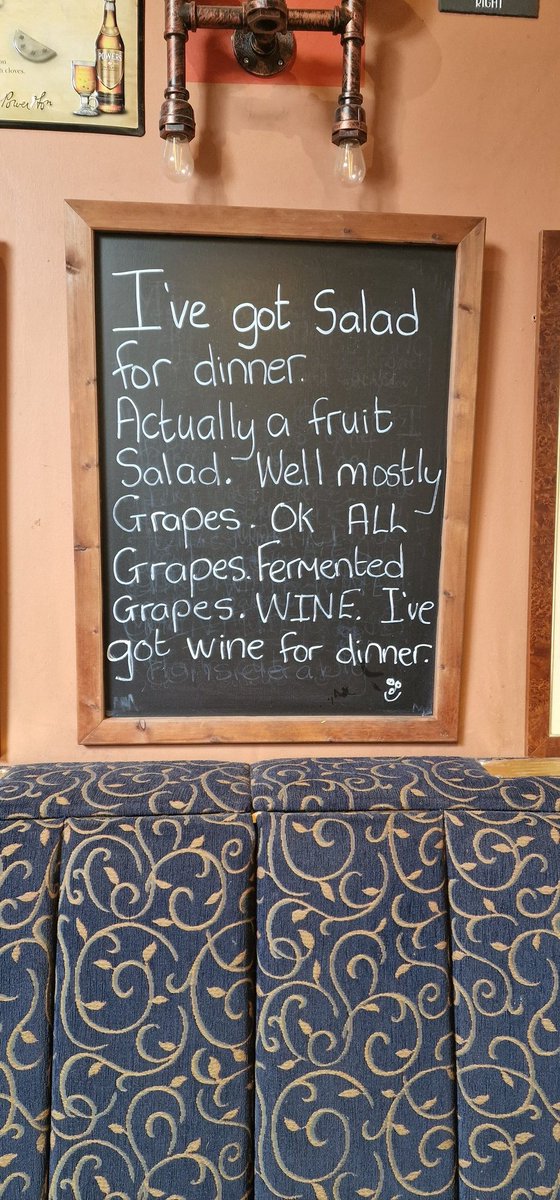 RIGHT
cloves.
POWERS
I've got Salad
for dinner.
Actually a fruit
Salad. Well mostly
Grapes. Ok ALL
Grapes. Fermented
Grapes. WINE. I've
got wine for dinner.